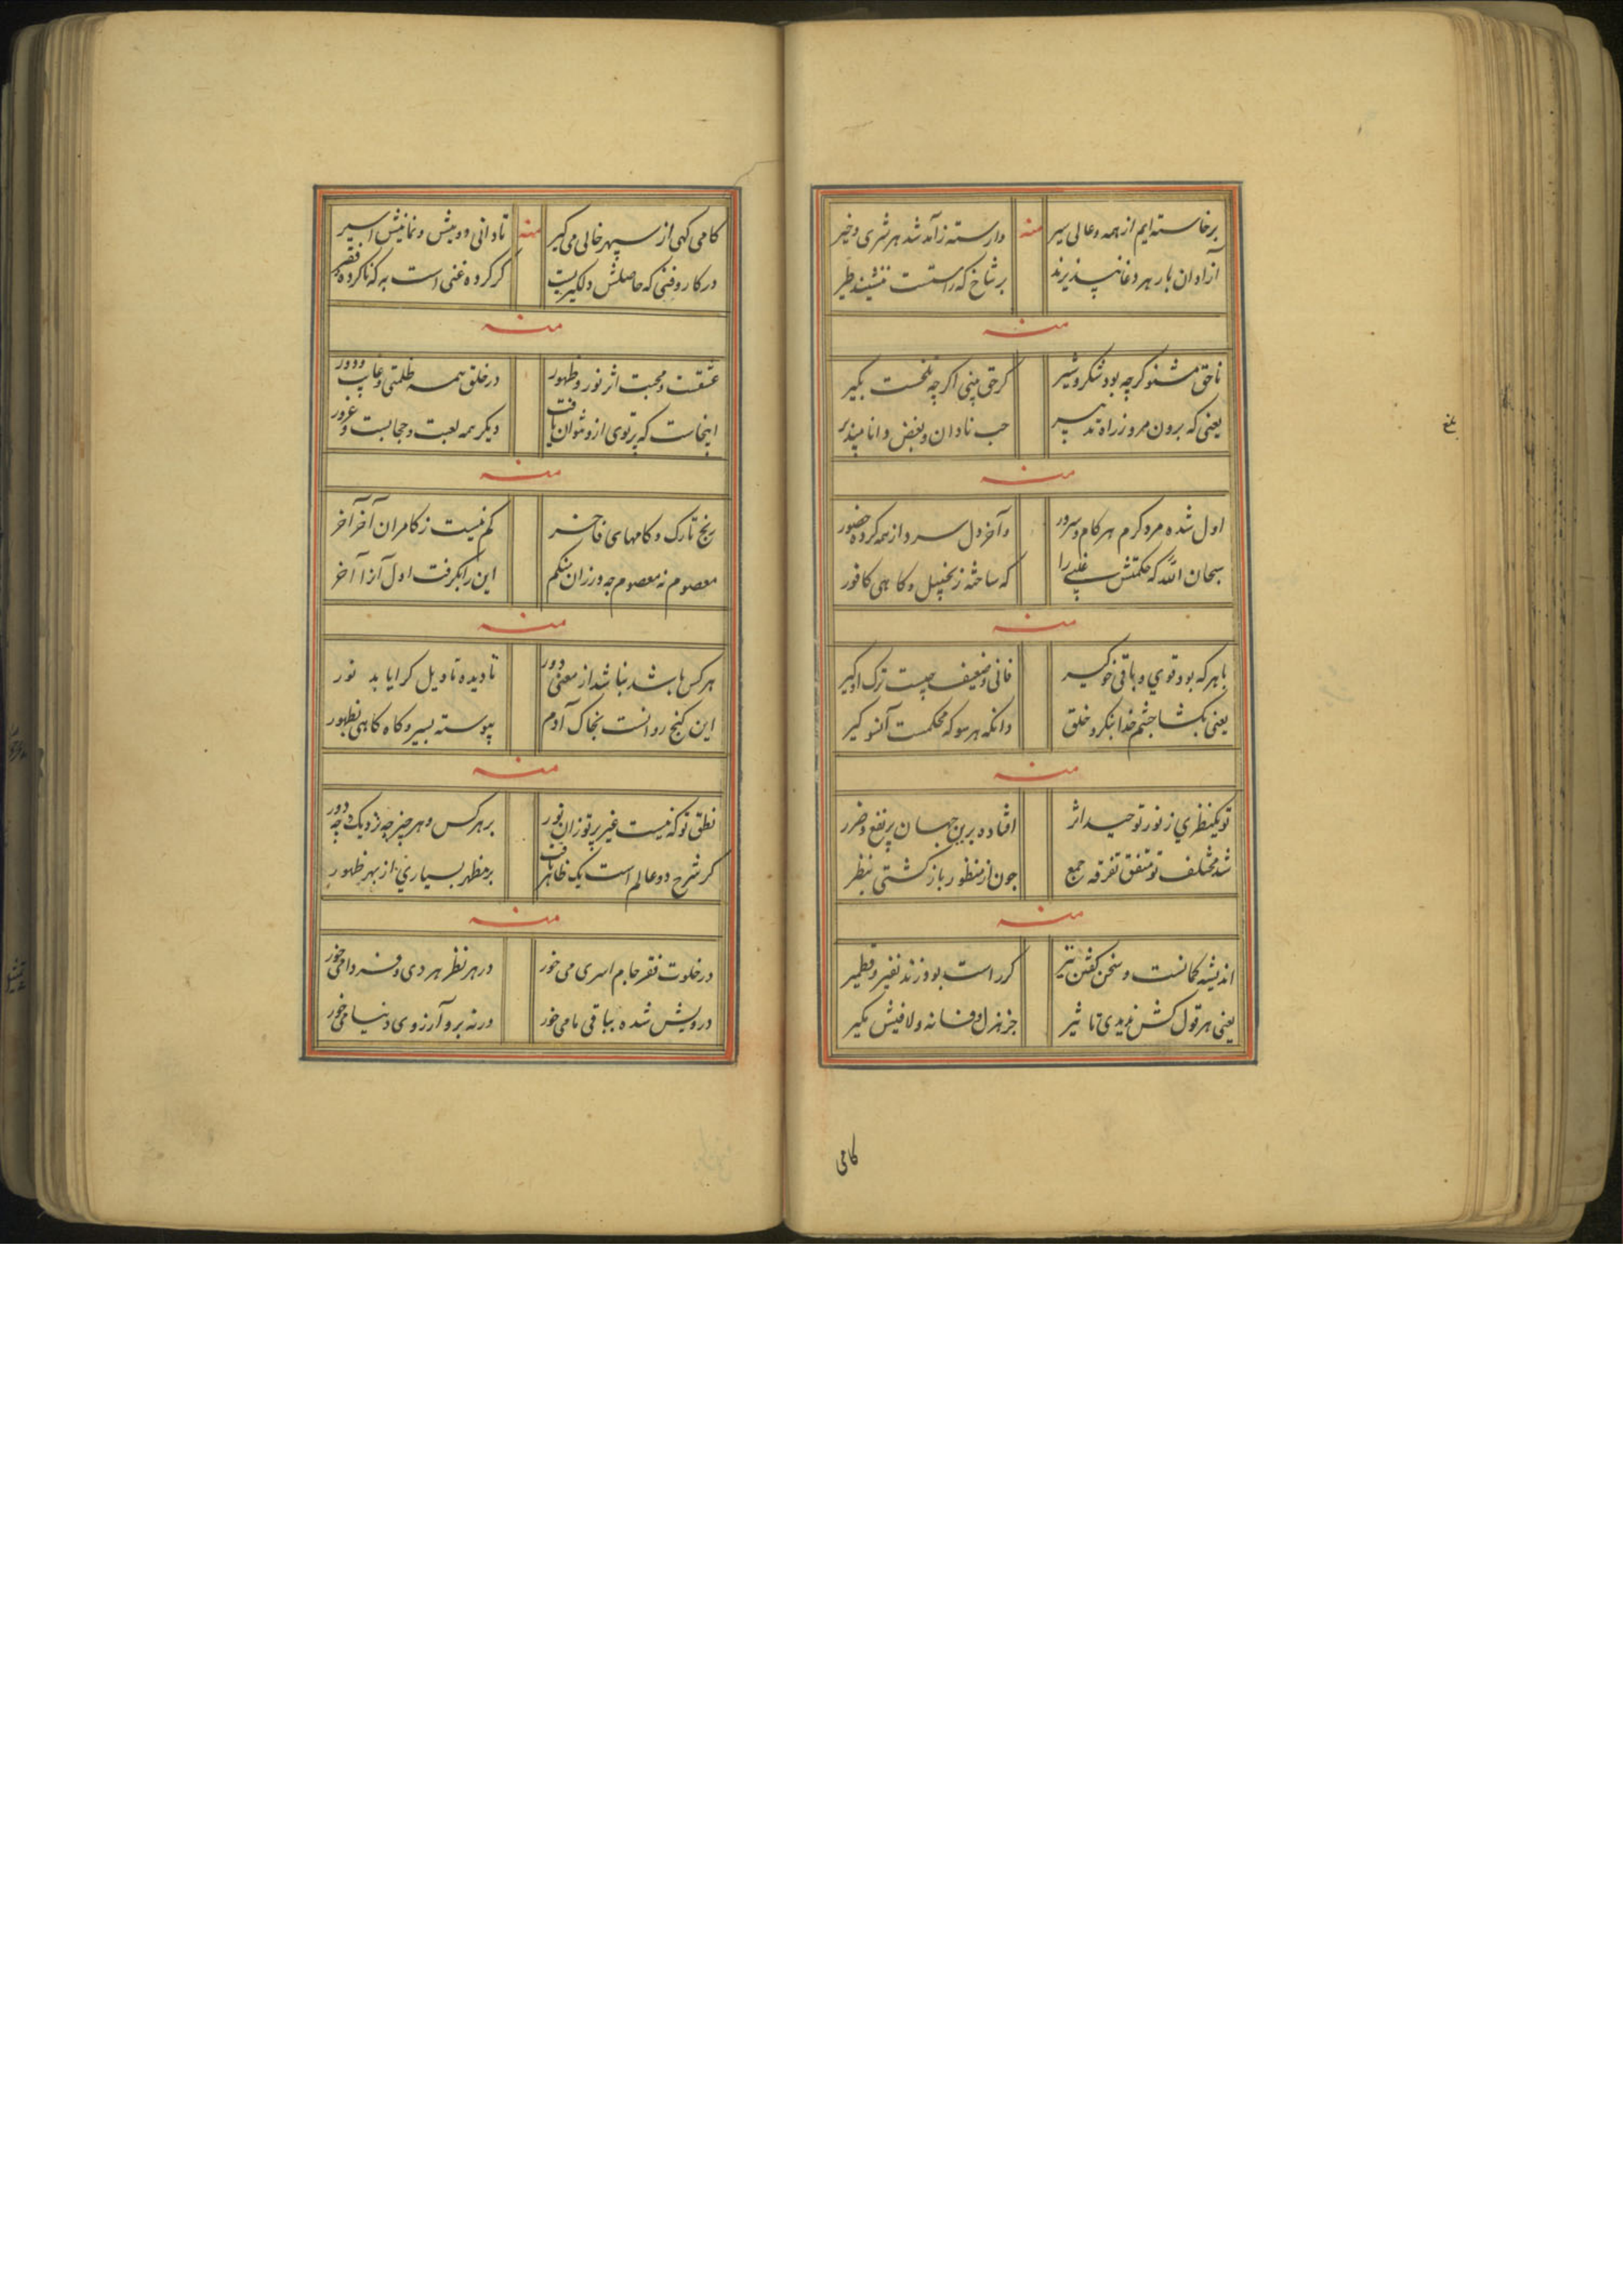 برخاسته ایم از همه و عالی سیر منه وارسته ز آمد شد هر شری و خیر
آزادان بار هر دغا نپذیرند بر شاخ که راستست ننشیند طیر
منه
ناحق مشنو کرچه بود شکر و شیر کر حق بینی اکرچه تلخست بکیر
یعنی که برون مرو ز راه تدبیر حب نادان و بغض دانا مپذیر
منه
اول شده مرد کرم هر کام و سرور و آخر دل سرد از همه کرده حضور
سبحان الله که حکمتش را که ساخته زنجبیل و کاهی کافور
منه
با هر که بود قوی و باقی خو کیر فانی و ضعیف چیست ترک او کیر
یعنی بکشا چشم خدا بنکر و خلق وانکه هر سو که محکمست آنسو کیر
منه
تو یکنظری ز نور توحید اثر افتاده برین جهان پر نفع و ضرر
شد مختلف تو متفق تفرقه جمع چون از منظور باز کشتی بنظر
منه
اندیشه کمانست و سخن کفتن تیر کر راست بود زند نقیر و قطمیر
یعنی هر قول کش ندیدی تاثیر جز هزل و فسانه و لافیش مکیر
کامی
بلغ
کامی کهی از سپهر خالی می کیر منه نادانی و بیش و نمانیش اسیر
در کار و فنی که حاصلش دلکیریست کر کرده غنی است به که ناکرده فقیر
منه
عشقست و محبت اثر نور و ظهور در خلق همه ظلمتی و غایب و دور
اینجاست که پرتوی ازو نتوان یافت دیکر همه لعبت و حجابست و غرور
منه
رنج تارک و کامهای فاخر کم نیست ز کامران آخر آخر
معصوم نه معصوم چه ورزان شکم این را بکرفت اول آنرا آخر
منه
هر کس باشد نباشد از معنی دور تا دیده تاویل کر ایابد نور
این کنج روانست بخاک آدم پیوسته بسیر و کاه کاهی بظهور
منه
نطق تو که نیست غیر پرتو زان نور بر هر کس و هر چیز چه نزدیک و چه دور
کر شرح دو عالم است یک ظاهر باف بر مظهر بسیاری از بهر ظهور
منه
در خلوت فقر جام اسری می خور در هر نظر هر دی و فردا می خور
درویش شده بباقی ما می خور ورنه برو آرزوی دنیا می خور